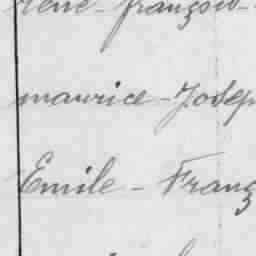 René - François -
maurice - Josep
Emile - Franç